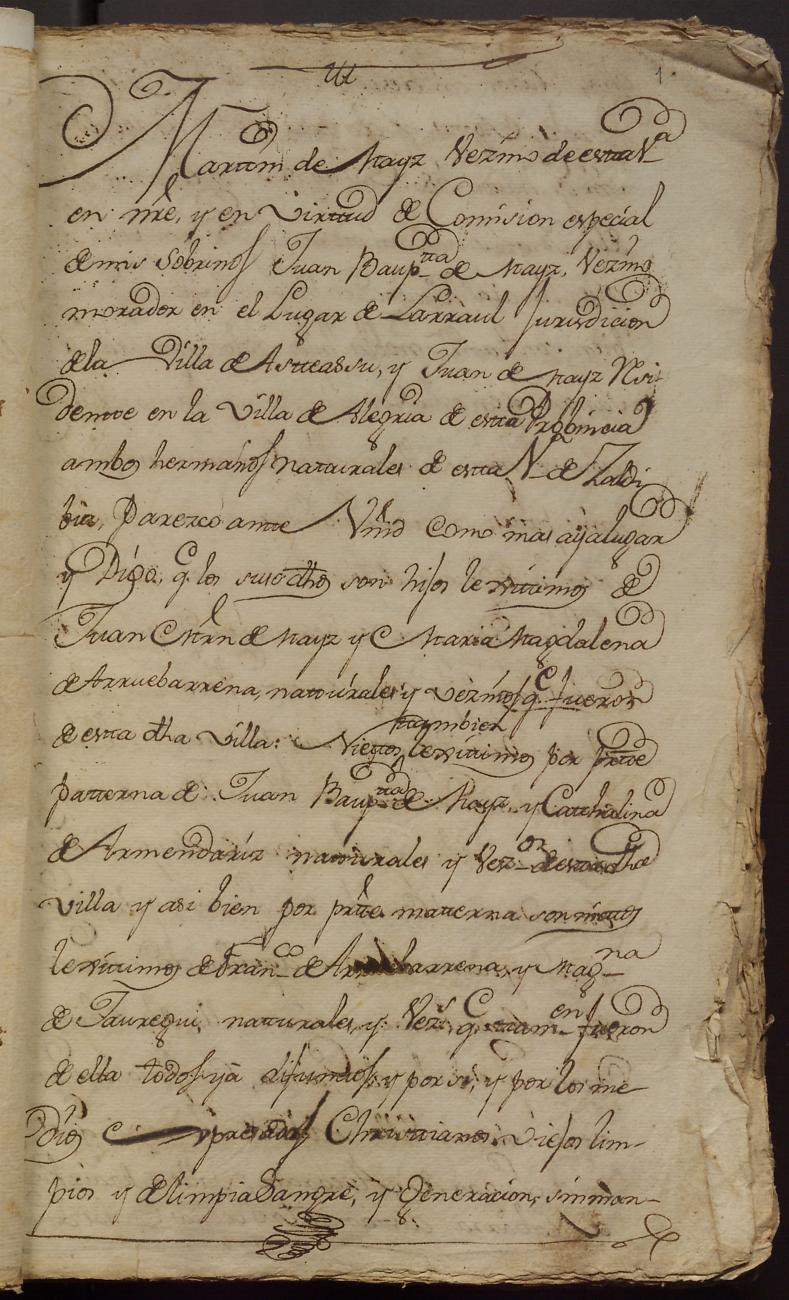 1
Martin de Mayz Vezino de esta V.ª
en nre, y en Virttud de Comision especial
de mis Sobrinos Juan Baup.tta de Mayz, Vezino
morador en el Lugar de Larraul Jurisdicion
de la Villa de Asteassu, y Juan de Mayz Resi
dentte en la Villa de Alegria de estta Probincia
ambos hermanos naturales de estta V.ª de Zaldi
bia, Parezco antte Vmd como mas aya lugar
y Digo, q.e los susodhos son hijos lexittimos de
Juan Mrn de Mayz y Maria Magdalena
de Arruebarrena, natturales y vezinos q.e fueron
de estta dha Villa: Niettos tambien lexittimos por partte
patterna de Juan Baup.tta de Mayz, y Catthalina
de Armendariz natturales y Vez.os de estta dha
Villa y asi bien por partte matterna son niettos
lexittimos de Fran.co de Arruebarrena, y Mag.na
de Jauregui, natturales, y Vez.s q.e ttam.en fueron
de ella todos ya difunttos, y por si, y por los me
dios expresados Christtianos Viejos lim-
pios y de limpia Sangre, y Generacion, sin man-